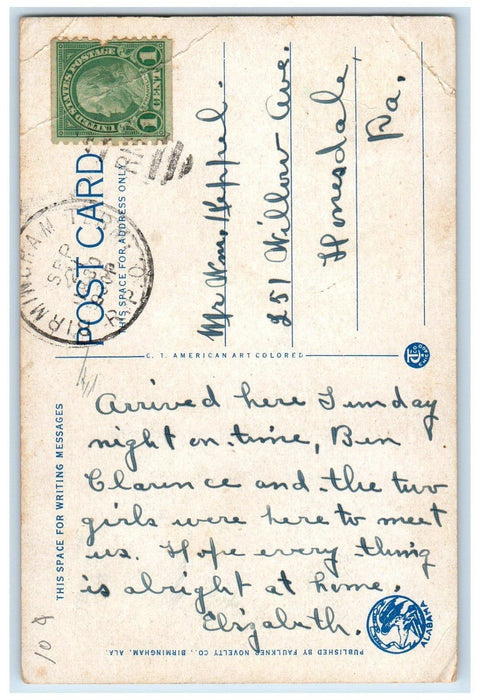 UNITED STATES POSTAGE
1 CENT 1
BIRMINGHAM
SEP
R.P.O.
POST CARD
THIS SPACE FOR ADDRESS ONLY
Mr Wm. Keppel.
251 Willow Ave.
Honesdale,
Pa.
C. T. AMERICAN ART COLORED
THIS SPACE FOR WRITING MESSAGES
Arrived here Sunday
night on time, Ben
Clarence and the two
girls were here to meet
us. Hope every thing
is alright at home.
Elizabeth.
ALABAMA
PUBLISHED BY FAULKNER NOVELTY CO., BIRMINGHAM, ALA.
10